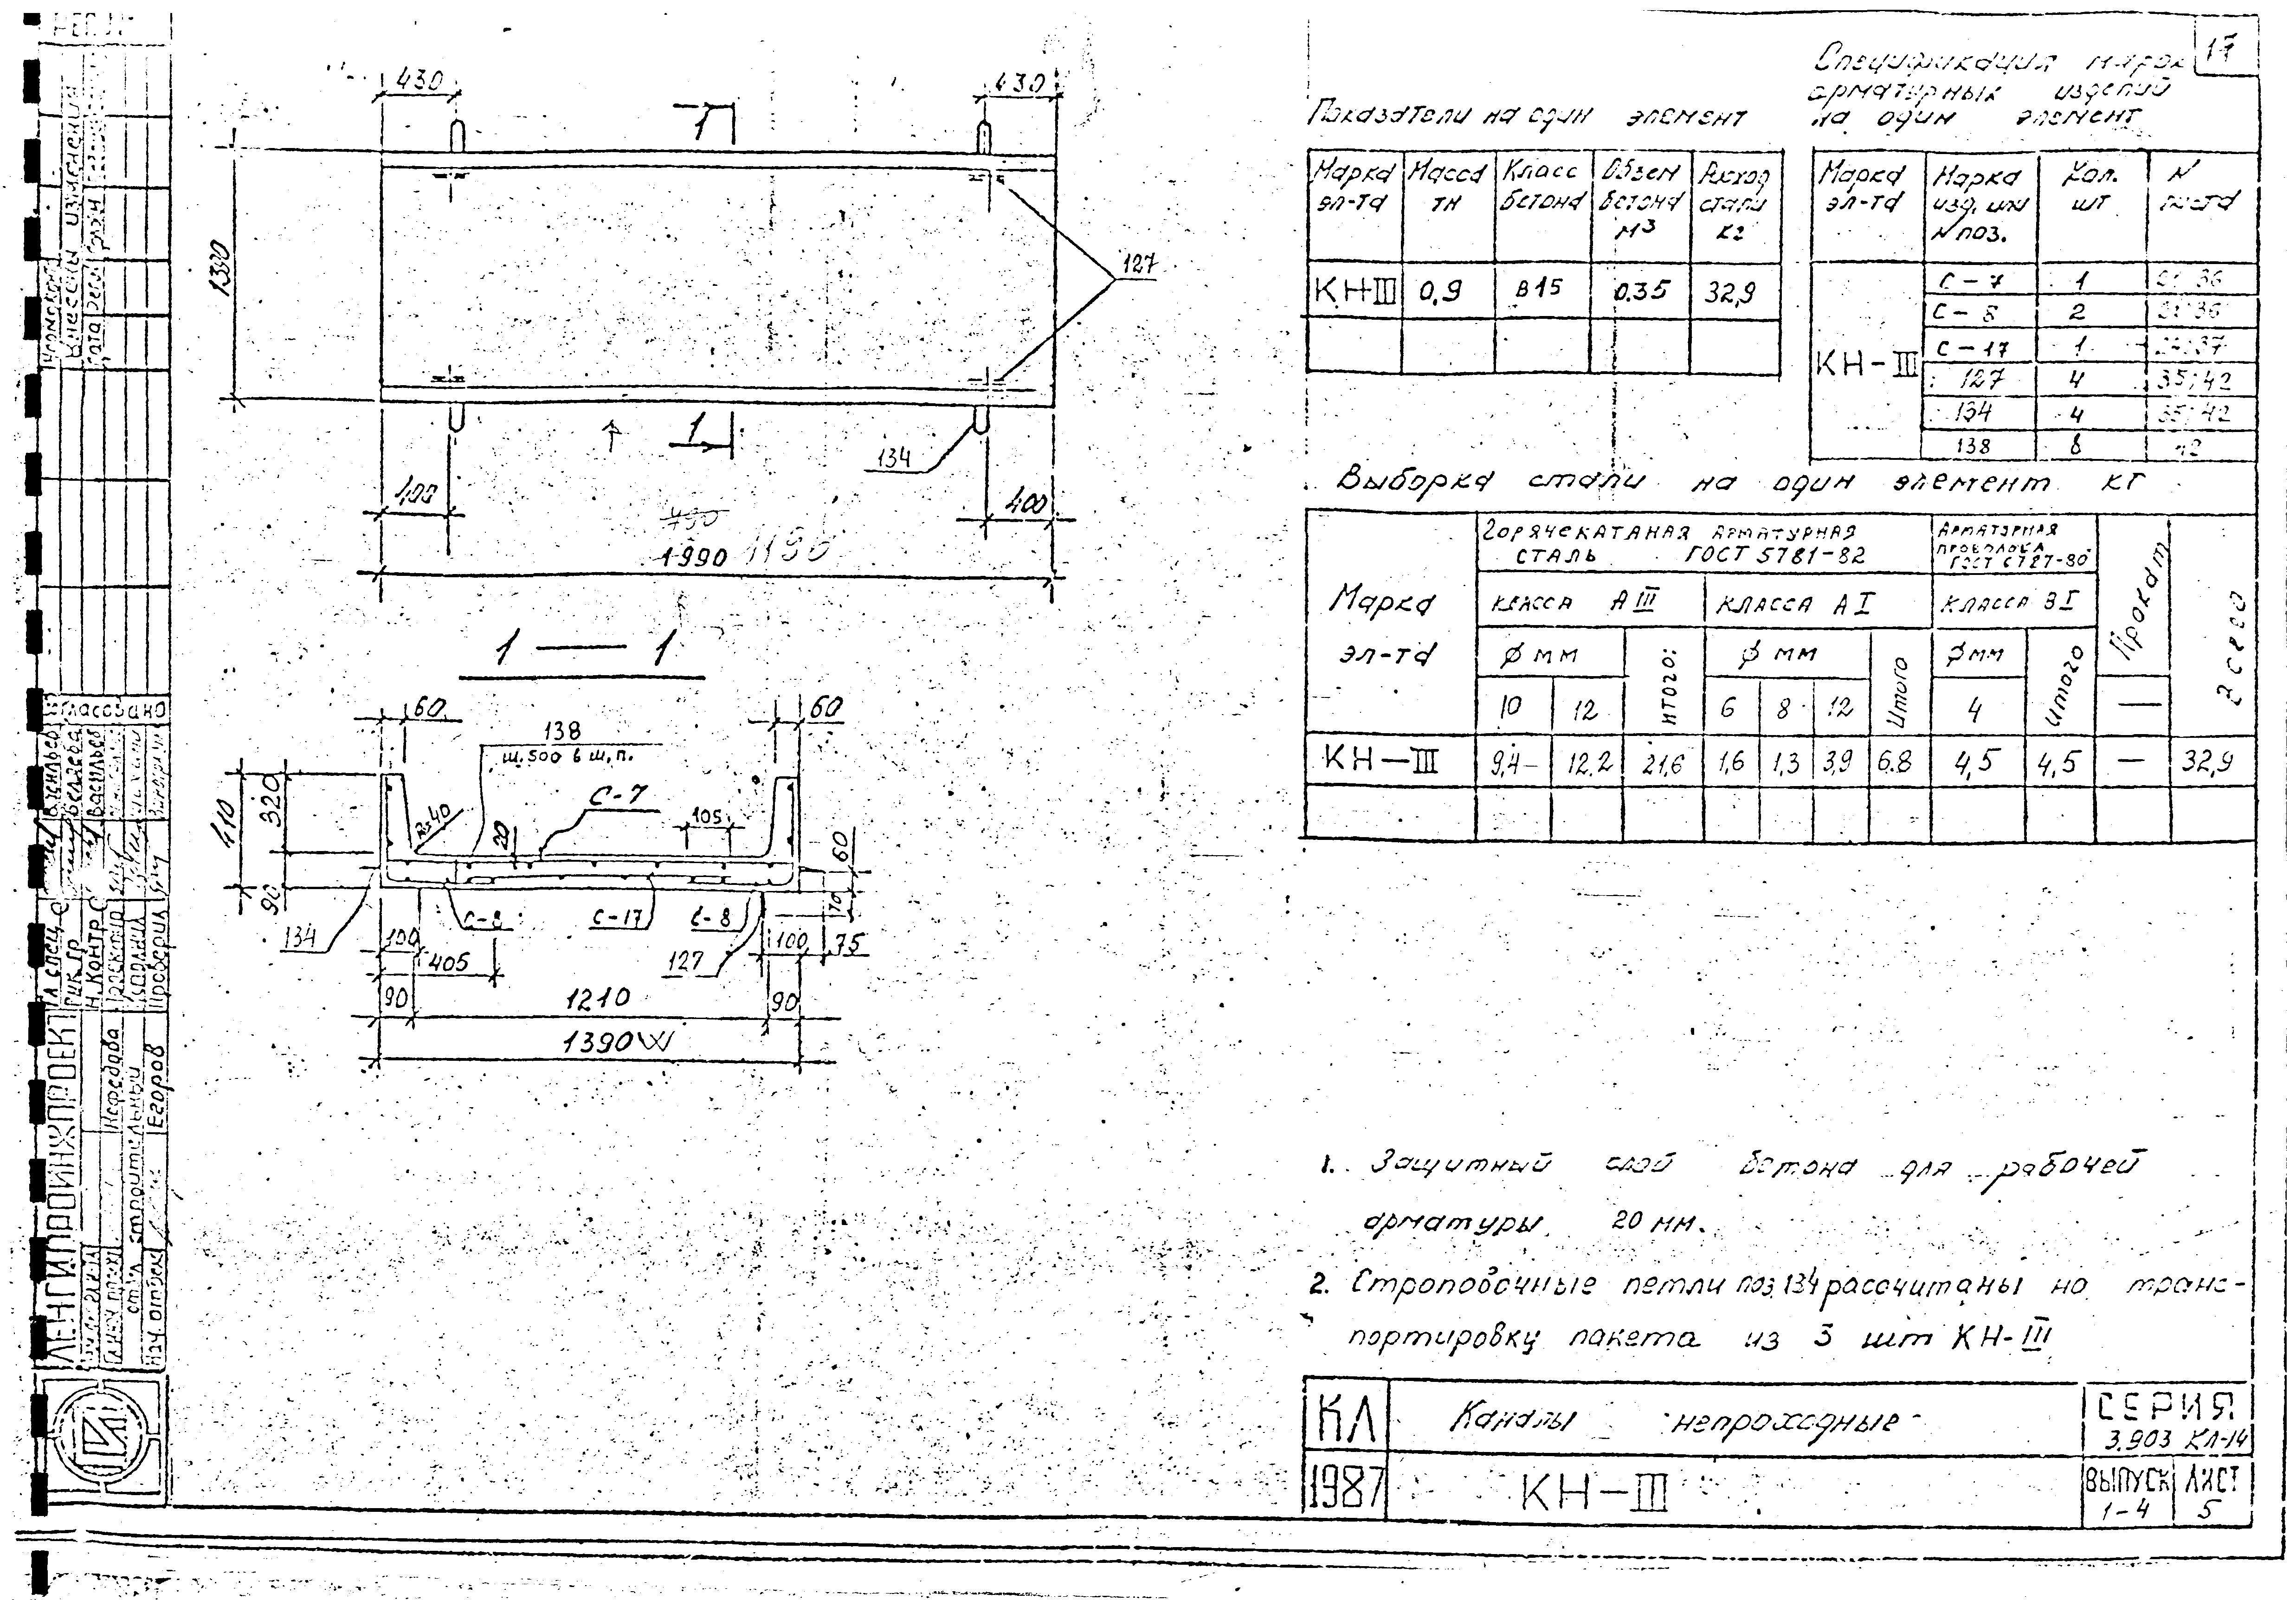 17
430
430
1
1390
127
1
134
400
400
490
1990 1190
1 — 1
60
60
138
ш.500 в ш.п.
С-7
410
320
R=40
20
105
60
90
70
134
С-8
С-17
С-8
100
405
127
100
75
90
1210
90
1390
Показатели на один элемент
Марка эл-та
Масса тн
Класс бетона
Объем бетона м3
Расход стали кг
КН-III 0,9 В15 0.35 32,9
Спецификация марок
арматурных изделий
на один элемент
Марка эл-та
Марка изд. или N поз.
Кол. шт
N листа
КН-III
С-7 1 36
С-8 2 36
С-17 1 37
127 4 35;42
134 4 35;42
138 8 42
Выборка стали на один элемент кг
Марка эл-та
Горячекатаная арматурная
сталь ГОСТ 5781-82
Арматурная
проволока
ГОСТ 6727-80
Прокат
Всего
класса А III
класса А I
класса В I
ф мм
Итого:
ф мм
Итого
ф мм
Итого
—
10 12 6 8 12 4
КН-III 9,4- 12.2 21,6 1,6 1,3 3,9 6.8 4,5 4,5 — 32,9
1. Защитный слой бетона для рабочей
арматуры 20 мм.
2. Строповочные петли поз.134 рассчитаны на транс-
портировку пакета из 3 шт КН-III
КЛ
Каналы непроходные
СЕРИЯ
3.903 КЛ-14
1987
КН-III
ВЫПУСК
1-4
ЛИСТ
5
Внесены изменения
Согласовано
Васильев
Беляева
Васильев
Гл. спец.
Рук. гр.
Н. контр.
Проверил
ЛЕНГИПРОИНЖПРОЕКТ
Нефедова
строительный
Нач. отдела
Егоров